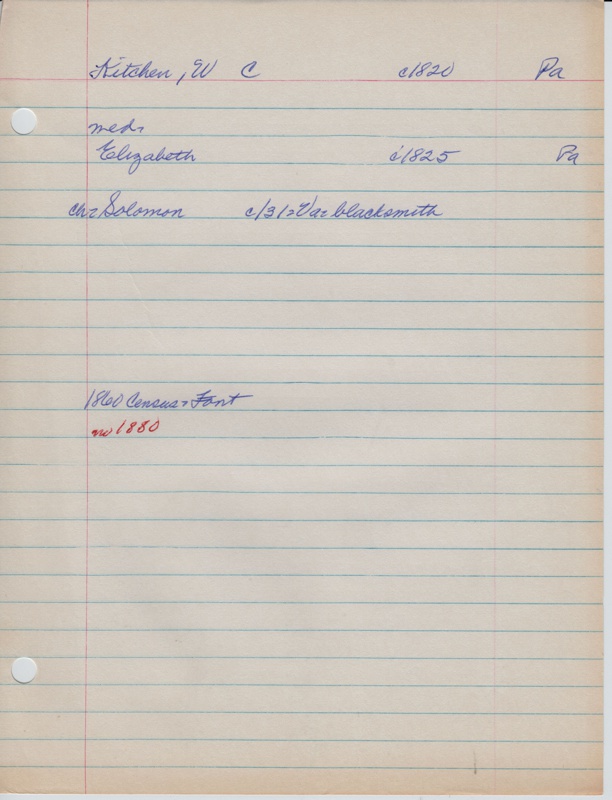 Kitchen, W C c1820 Pa
med=
Elizabeth c1825 Pa
ch= Solomon c/31=Va= blacksmith
1860 Census= Font
no 1880